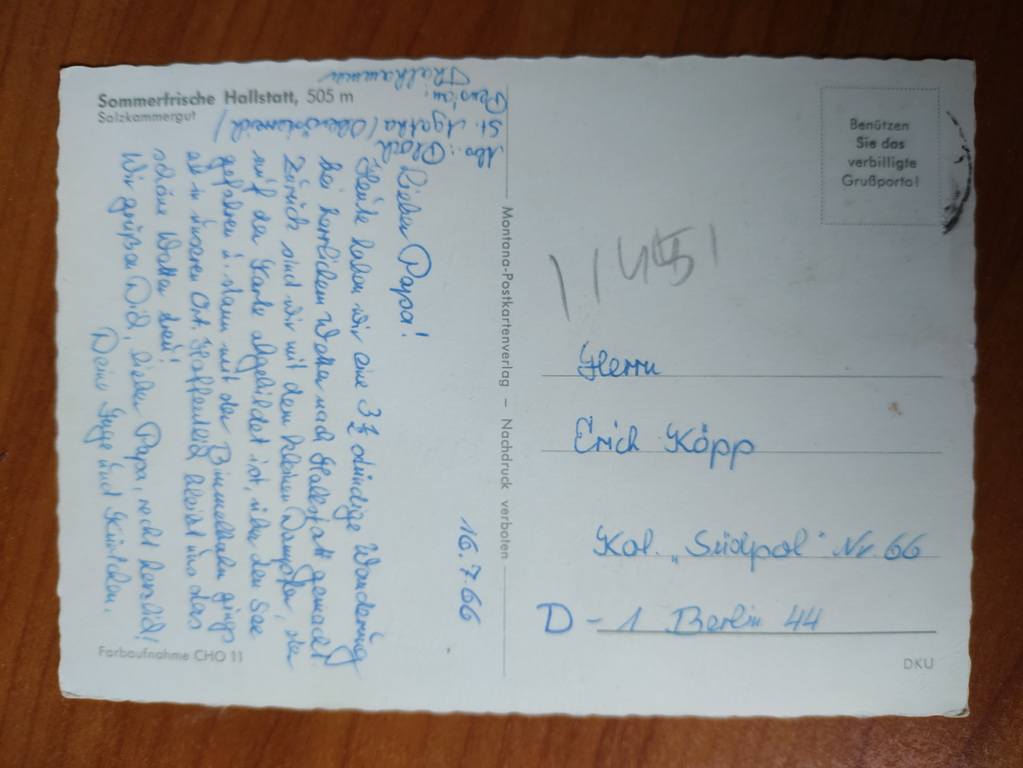 Sommerfrische Hallstatt, 505 m
Salzkammergut
Abs.: Ploch
St. Agatha (Oberösterreich)
Pension
16.7.66
Lieber Papa!
Heute haben wir eine 3½ stündige Wanderung
bei herrlichem Wetter nach Hallstatt gemacht.
Zurück sind wir mit dem kleinen Dampfer, der
auf der Karte abgebildet ist, über den See
gefahren u. dann mit der Bimmelbahn ging's
ab in unseren Ort. Hoffentlich bleibt uns das
schöne Wetter treu!
Wir grüßen Dich, lieber Papa, recht herzlich!
Deine Inge und Kurtchen.
Farbaufnahme CHO 11
Montana-Postkartenverlag – Nachdruck verboten
Benützen
Sie das
verbilligte
Grußporto!
Herrn
Erich Köpp
Kol. „Südpol" Nr. 66
D - 1 Berlin 44
DKU